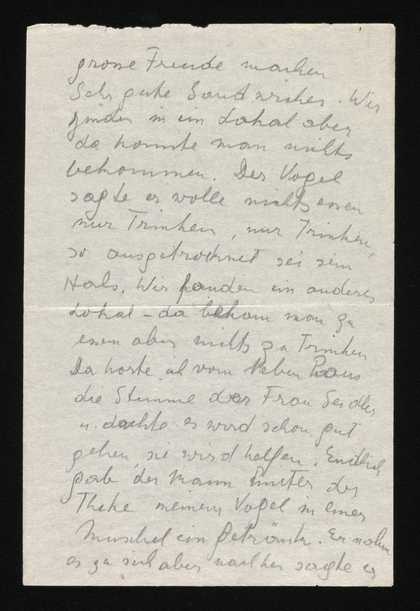 grosse Freude machen
Sehr gute Sandwiches. Wir
gingen in ein Lokal aber
da konnte man nichts
bekommen. Der Vogel
sagte er wolle nichts essen
nur Trinken, nur Trinken,
so ausgetrocknet sei sein
Hals. Wir fanden ein anderes
Lokal - da bekam man zu
essen aber nichts zu Trinken
Da hörte ich vom Neben Raum
die Stimme der Frau
u. dachte es wird schon gut
gehen, sie wird helfen. Endlich
gab der Mann hinter der
Theke meinem Vogel in einer
Muschel ein Getränk. Er nahm
es zu sich aber nachher sagte er